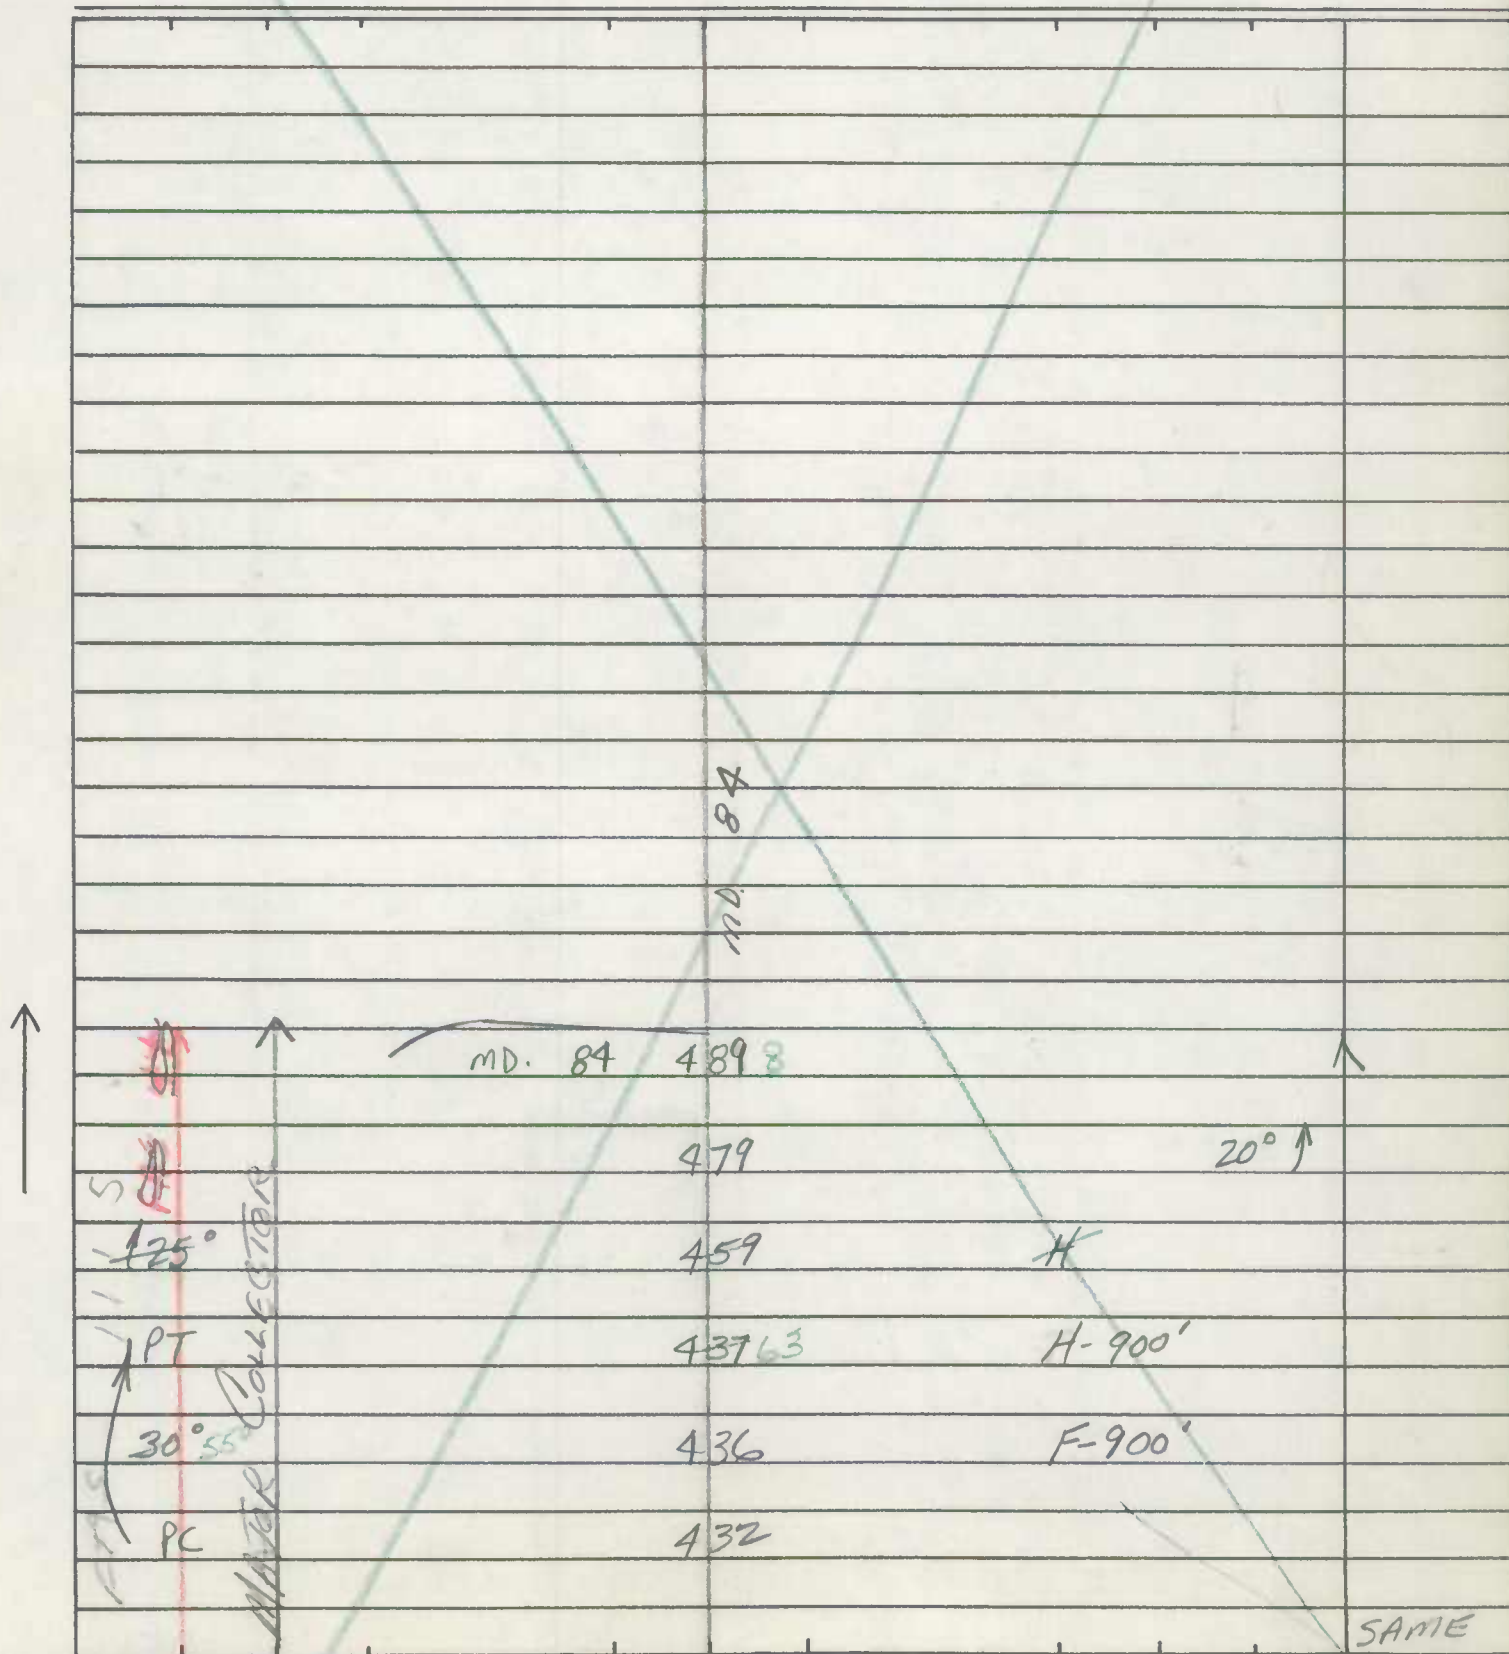 MD. 84
MD. 84 489 8
479 20°
125° 459 H
PT 437 63 H-900'
30° 55° 436 F-900'
PC 432
COLLECTOR
SAME